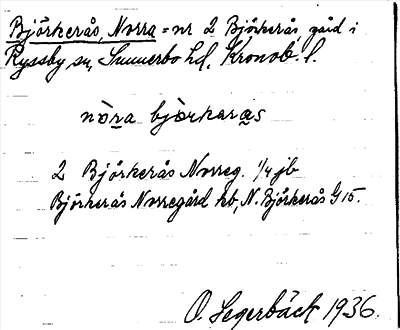 Björkerås, Norra = nr 2 Björkerås, gård i
Ryssby sn, Sunnerbo hd, Kronob. l.
nòra bjòrkaras
2 Björkerås Norreg. 1/4 jb
Björkerås Norregård hb, N. Björkerås G 15.
O. Segerbäck 1936.